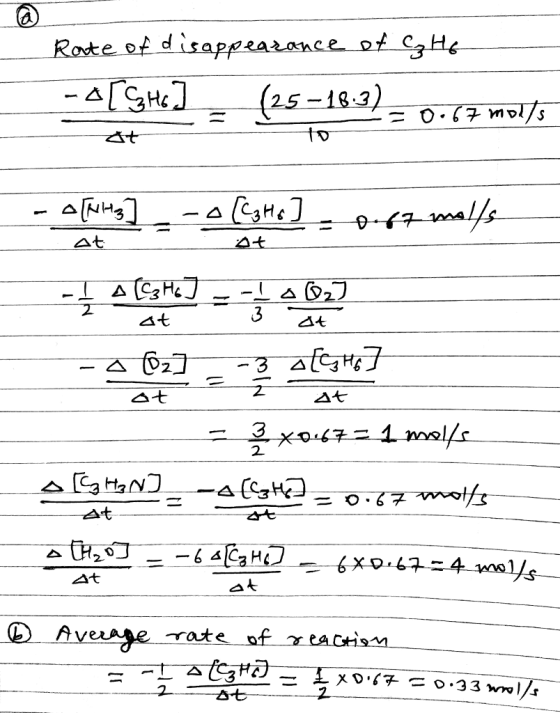 ⓐ
Rate of disappearance of C₃H₆
-Δ[C₃H₆]/Δt = (25-18.3)/10 = 0.67 mol/s
-Δ[NH₃]/Δt = -Δ[C₃H₆]/Δt = 0.67 mol/s
-1/2 Δ[C₃H₆]/Δt = -1/3 Δ[O₂]/Δt
-Δ[O₂]/Δt = -3/2 Δ[C₃H₆]/Δt
= 3/2 × 0.67 = 1 mol/s
Δ[C₃H₃N]/Δt = -Δ[C₃H₆]/Δt = 0.67 mol/s
Δ[H₂O]/Δt = -6Δ[C₃H₆]/Δt = 6×0.67 = 4 mol/s
ⓑ Average rate of reaction
= -1/2 Δ[C₃H₆]/Δt = 1/2 × 0.67 = 0.33 mol/s